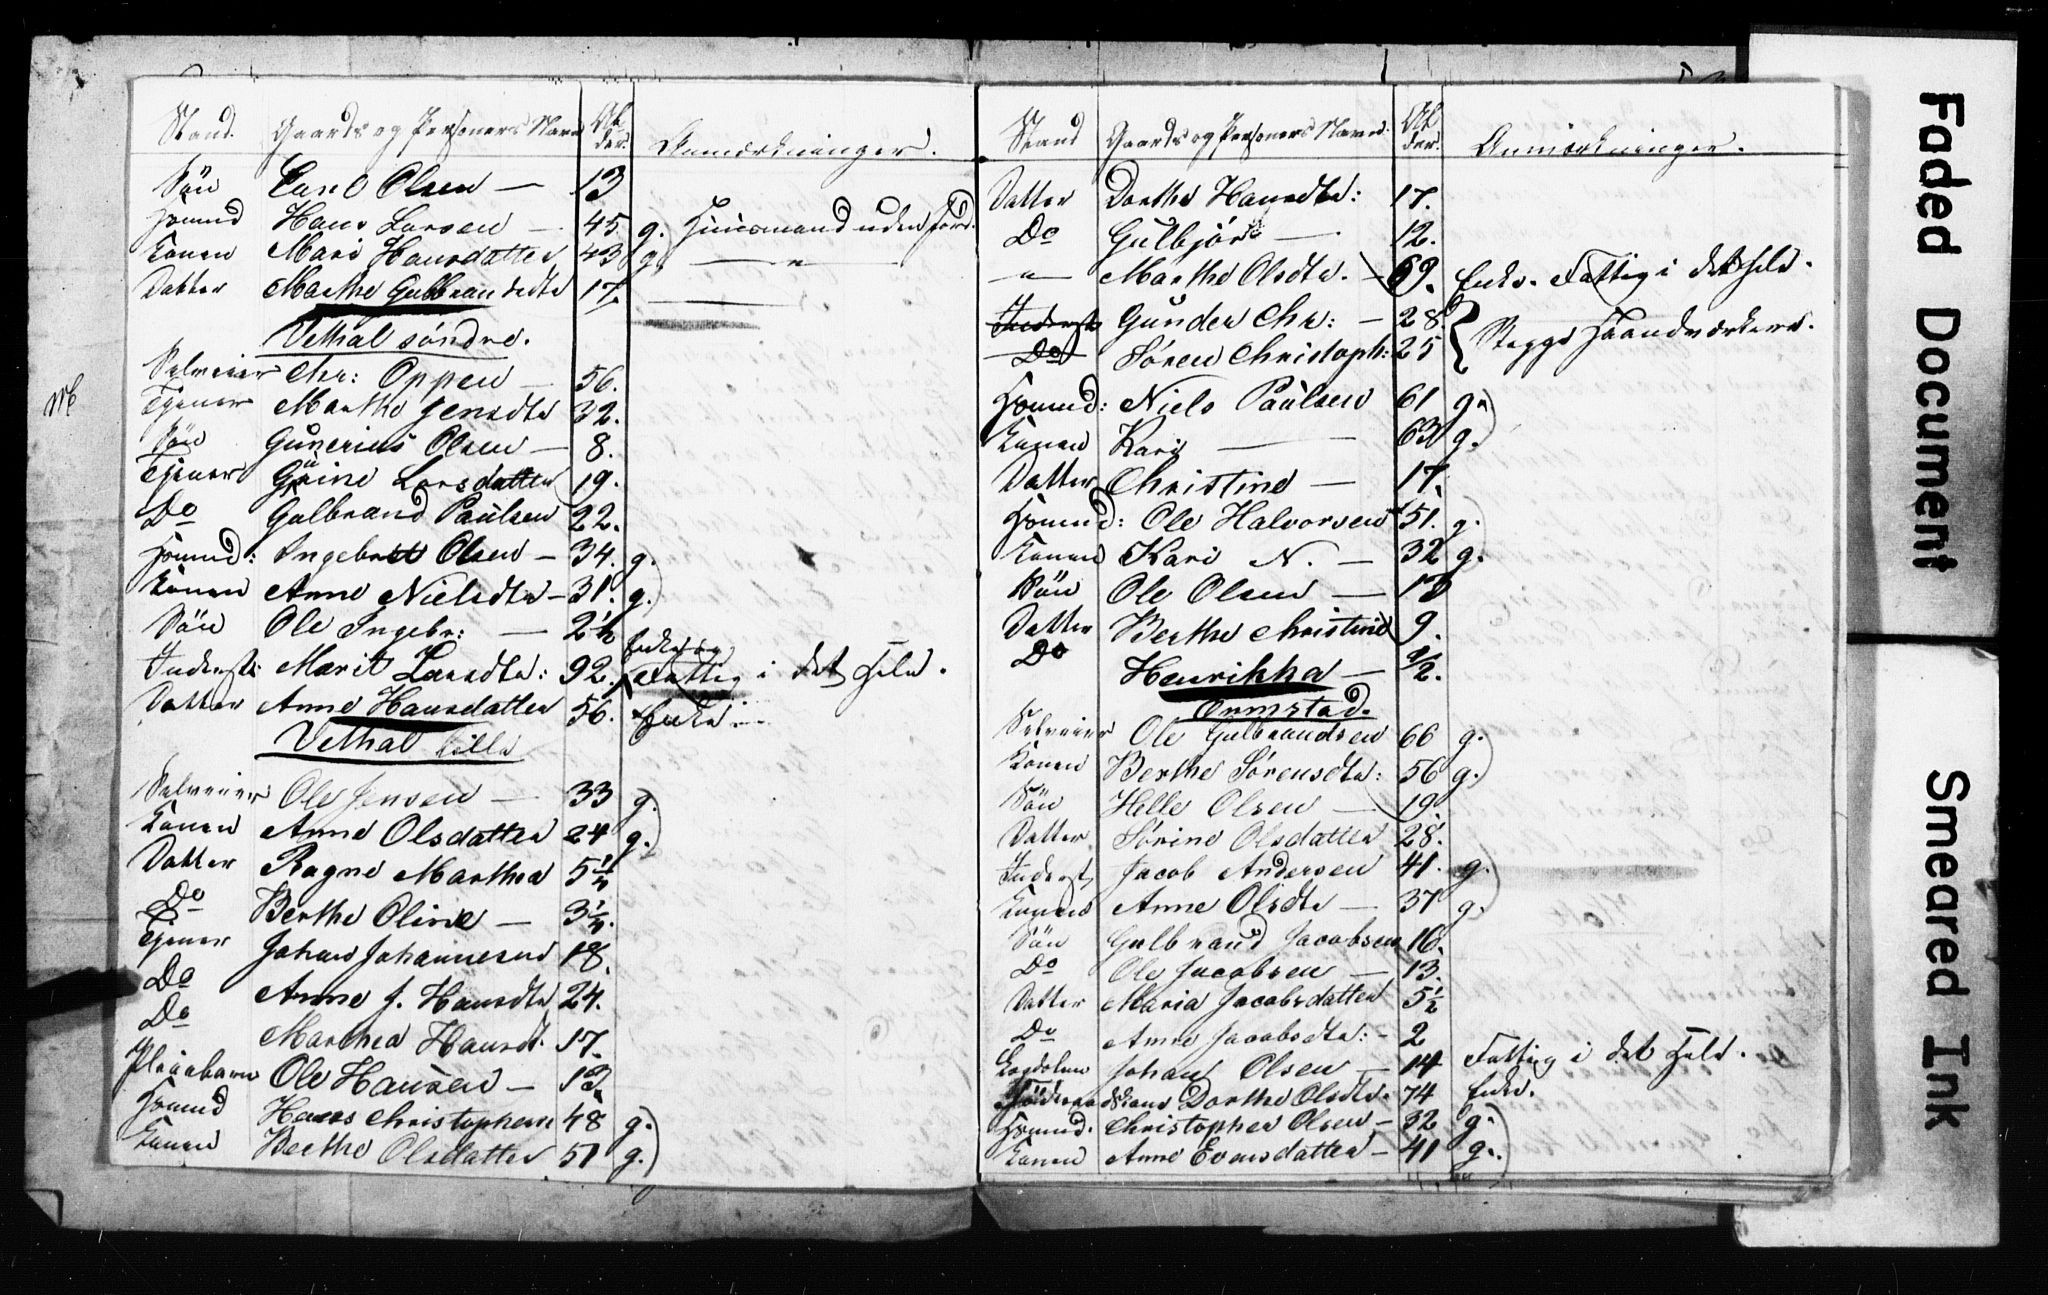 Stand. Gaards og Personers Navne Al-der. Anmærkninger.
Sön Carl Olsen — 13
Hsmnd Hans Larsen — 45. g. Huusmand uden Jord.
Konen Mari Hansdatter 43 g. — " —
Datter Marthe Gulbransdtr 17. —
Vethal söndre.
Selveier Chr: Oppen — 56.
Tjener Marthe Jensdtr 32.
Sön Gunerius Olsen — 8.
Tjener Larsdatter 19.
Do Gulbrand Paulsen 22.
Hsmnd: Ingebret Olsen — 34. g.
Konen Anne Nielsdtr — 31. g.
Sön Ole Ingebr: — 2 1/2
Inderst: Marit Larsdtr: 92. Enke og Fattig i det Hele.
Datter Anne Hansdatter 56. Enke.
Vethal lille
Selveier Ole Jensen — 33 g.
Konen Anne Olsdatter 24 g.
Datter Ragne Marthea 5 1/4
Do Berthe Oline — 3 1/4
Tjener Johans Johannesen 18.
Do Anne J. Hansdtr 24.
Do Marthea Hansdt. 17.
Pleiebarn Ole Hansen — 13.
Hsmnd Hans Christophersen 48 g.
Konen Berthe Olsdatter 51 g.
Stand Gaards og Personers Navne. Al-der. Anmærkninger.
Datter Dorthe Hansdtr: 17.
Do Gulbjör — 12.
— " — Marthe Olsdtr. — 69. Enke. Fattig i det Hele.
Inderst Gunder Chr: — 28. Begge Haandværkere.
Do Sören Christoph: 25
Hsmnd: Niels Paulsen 61 g.
Konen Kari — 63 g.
Datter Christine — 17.
Hsmnd: Ole Halvorsen 51. g.
Konen Kari N. — 32 g.
Sön Ole Olsen —
Datter Berthe Christine 9.
Do Henrikka — 1/2.
Ormstad.
Selveier Ole Gulbrandsen 66 g.
Konen Berthe Sörensdtr: 56 g.
Sön Helle Olsen — 19.
Datter Sörine Olsdatter 28.
Inderst Jacob Andersen 41. g.
Konen Anne Olsdtr — 37 g.
Sön Gulbrand Jacobsen 16.
Do Ole Jacobsen — 13.
Datter Maria Jacobsdatter 5 1/2
Do Anne Jacobsdtr: — 2
Lægdslem Johan Olsen — 14 Fattig i det Hele.
Föderaadskone Dorthe Olsdtr. 74 Enke.
Hsmnd. Christopher Olsen — 32 g.
Konen Anne Evensdatter — 41 g.
Faded Document
Smeared Ink